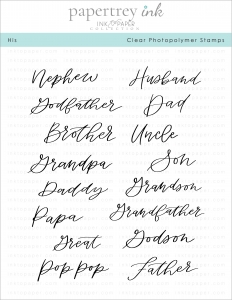 papertrey ink
COLLECTION
His Clear Photopolymer Stamps
Nephew Husband
Godfather Dad
Brother Uncle
Grandpa Son
Daddy Grandson
Papa Grandfather
Great Godson
Pop Pop Father